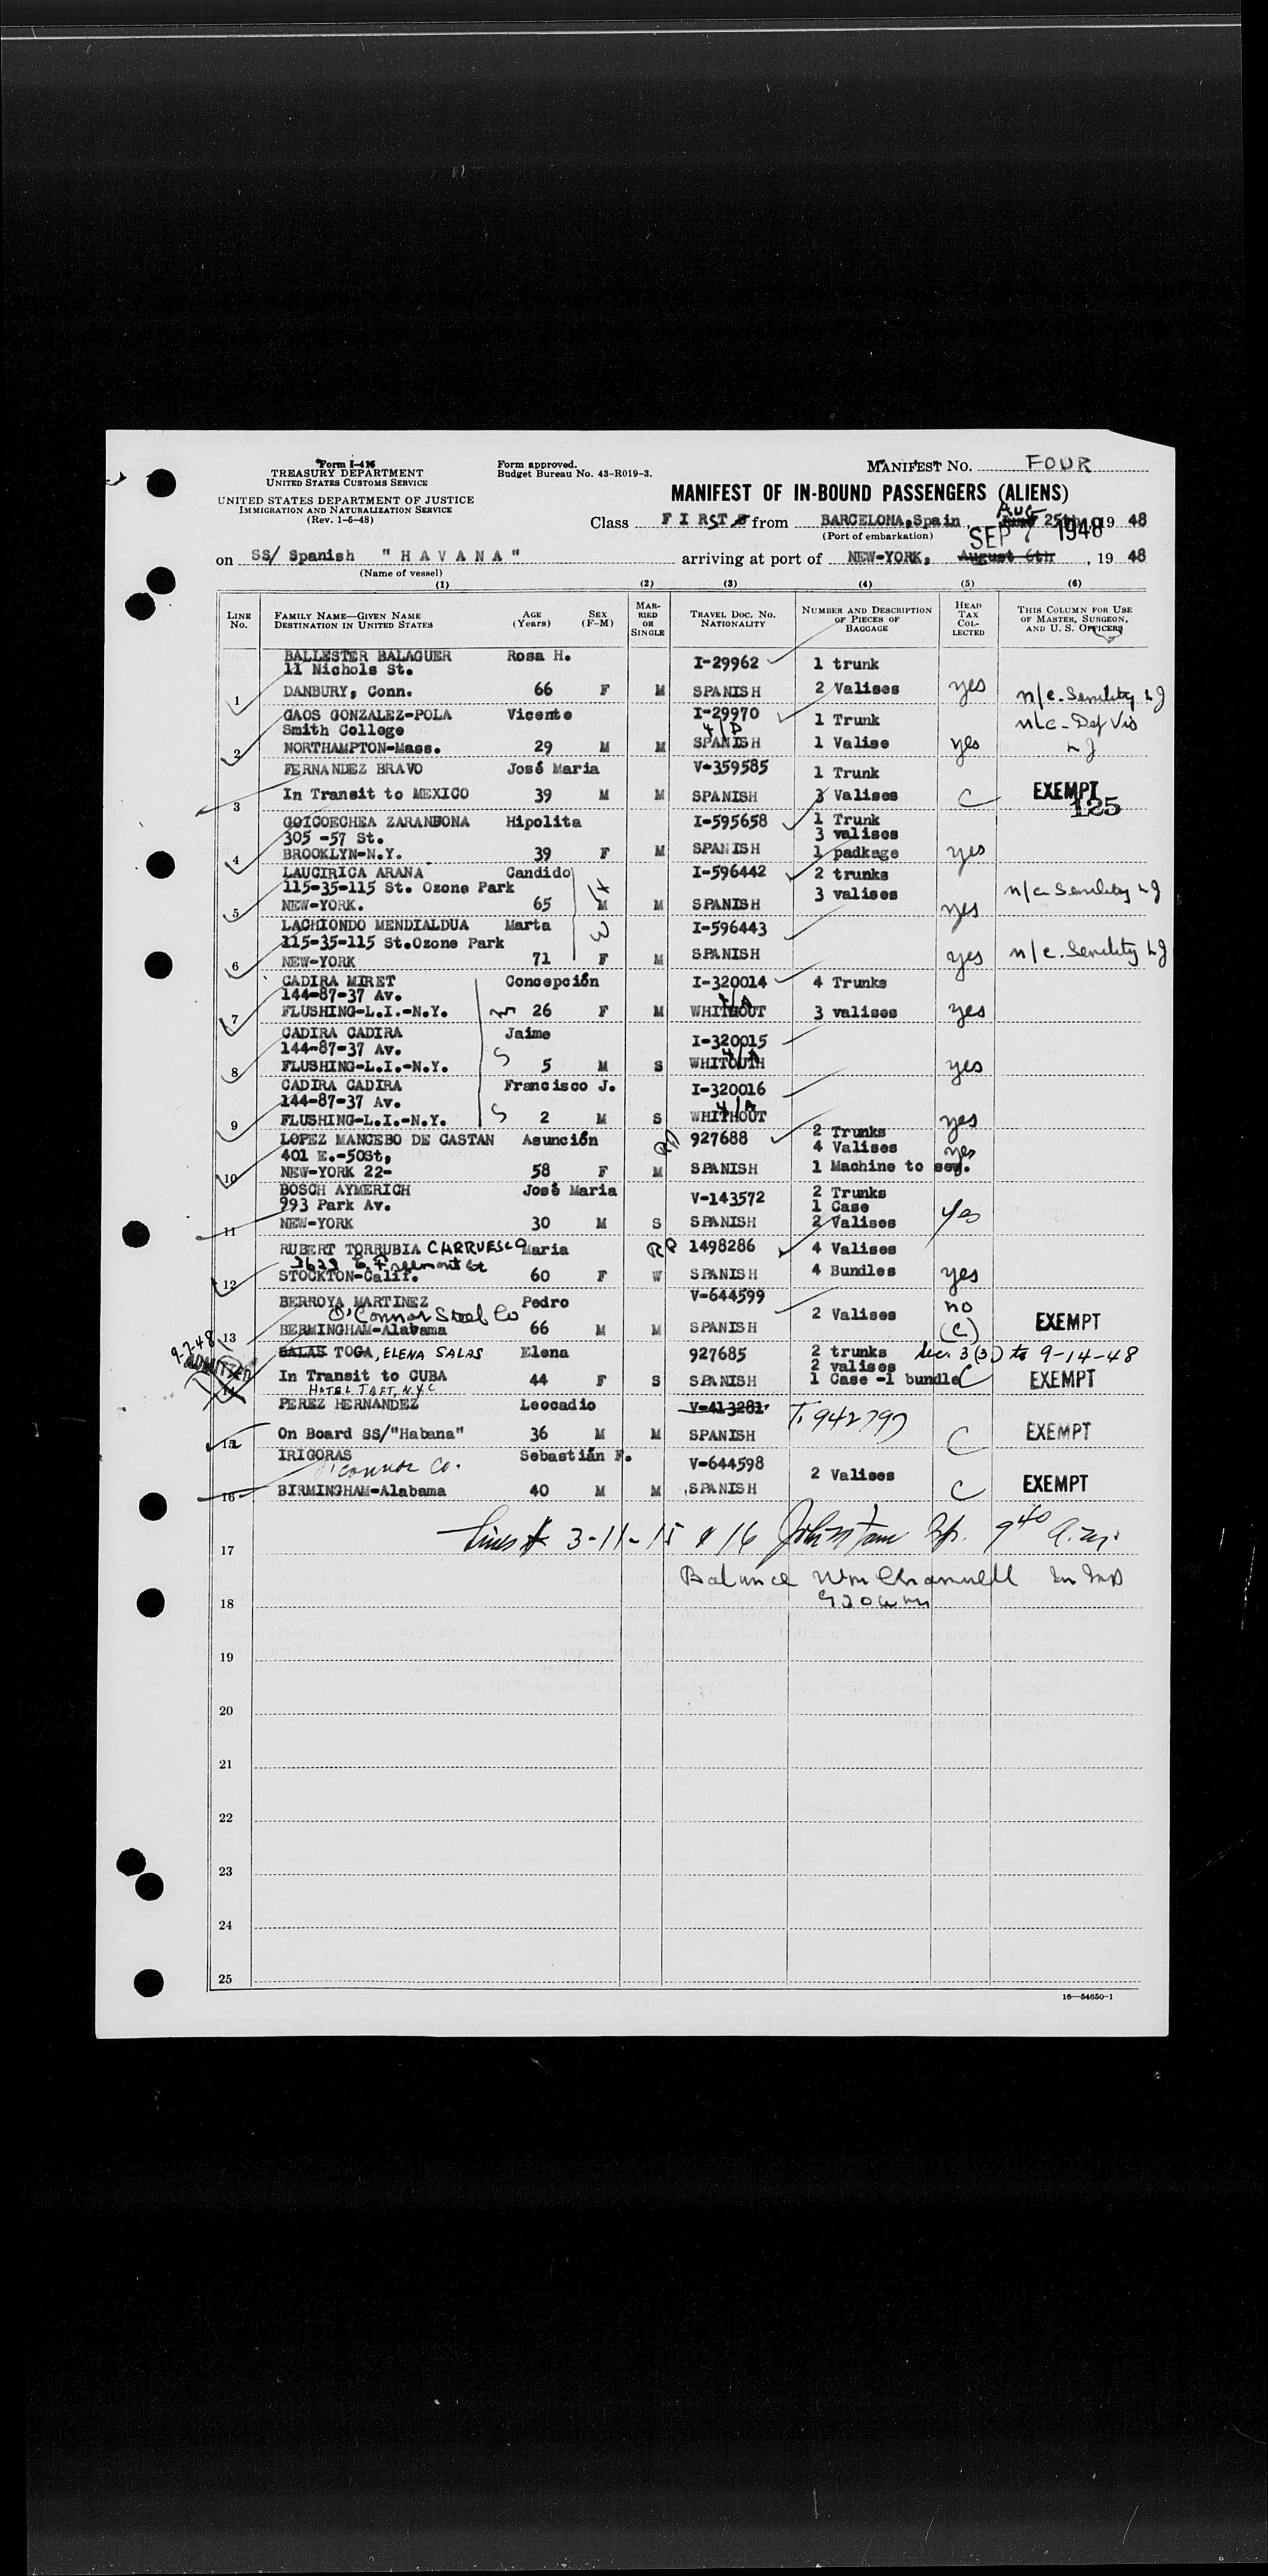 Form I-416
TREASURY DEPARTMENT
UNITED STATES CUSTOMS SERVICE
UNITED STATES DEPARTMENT OF JUSTICE
IMMIGRATION AND NATURALIZATION SERVICE
(Rev. 1-5-48)
Form approved.
Budget Bureau No. 43-R019-3.
MANIFEST NO. FOUR
MANIFEST OF IN-BOUND PASSENGERS (ALIENS)
Class F I R S T from BARCELONA, Spain, Aug 25th, 19 48
(Port of embarkation)
SEP 7 1948
on SS/ Spanish "H A V A N A" arriving at port of NEW-YORK, August 6th, 19 48
(Name of vessel)
(1) (2) (3) (4) (5) (6)
LINE No. FAMILY NAME—GIVEN NAME DESTINATION IN UNITED STATES AGE (Years) SEX (F-M) MARRIED OR SINGLE TRAVEL DOC. NO. NATIONALITY NUMBER AND DESCRIPTION OF PIECES OF BAGGAGE HEAD TAX COLLECTED THIS COLUMN FOR USE OF MASTER, SURGEON, AND U. S. OFFICERS
BALLESTER BALAGUER Rosa H. I-29962 1 trunk
11 Nichols St.
1 DANBURY, Conn. 66 F M SPANISH 2 Valises yes n/c. Senility LJ
GAOS GONZALEZ-POLA Vicente I-29970 1 Trunk n/c - Def Vis
Smith College 4/D
2 NORTHAMPTON-Mass. 29 M M SPANISH 1 Valise yes LJ
FERNANDEZ BRAVO José Maria V-359585 1 Trunk
3 In Transit to MEXICO 39 M M SPANISH 3 Valises C EXEMPT
125
GOICOECHEA ZARANDONA Hipolita I-595658 1 Trunk
305 -57 St. 3 valises
4 BROOKLYN-N.Y. 39 F M SPANISH 1 padkage yes
LAUCIRICA ARANA Candido I-596442 2 trunks
115-35-115 St. Ozone Park H 3 valises n/c Senility LJ
5 NEW-YORK. 65 M M SPANISH yes
LACHIONDO MENDIALDUA Marta I-596443
115-35-115 St.Ozone Park W
6 NEW-YORK 71 F M SPANISH yes n/c. Senility LJ
CADIRA MIRET Concepción I-320014 4 Trunks
144-87-37 Av.
7 FLUSHING-L.I.-N.Y. 26 F M WHITHOUT 3 valises yes
CADIRA CADIRA Jaime I-320015
144-87-37 Av. S
8 FLUSHING-L.I.-N.Y. 5 M S WHITOUTH yes
CADIRA CADIRA Francisco J. I-320016
144-87-37 Av. S
9 FLUSHING-L.I.-N.Y. 2 M S WHITHOUT yes
LOPEZ MANCEBO DE CASTAN Asunción RP 927688 2 Trunks
401 E.-50St, 4 Valises yes
10 NEW-YORK 22- 58 F M SPANISH 1 Machine to sew.
BOSCH AYMERICH José Maria V-143572 2 Trunks
993 Park Av. 1 Case
11 NEW-YORK 30 M S SPANISH 2 Valises yes
RUBERT TORRUBIA CARRUESCO Maria RP 1498286 4 Valises
12 STOCKTON-Calif. 60 F W SPANISH 4 Bundles yes
BERROYA MARTINEZ Pedro V-644599 no
O'Connor Steel Co 2 Valises (C) EXEMPT
13 BERMINGHAM-Alabama 66 M M SPANISH
9-7-48
ADMITTED
SALAS TOGA, ELENA SALAS Elena 927685 2 trunks Sec. 3(3) to 9-14-48
2 valises
14 In Transit to CUBA 44 F S SPANISH 1 Case -1 bundle C EXEMPT
HOTEL TAFT, N.Y.C
PEREZ HERNANDEZ Leocadio V-413281 T. 942797
15 On Board SS/"Habana" 36 M M SPANISH C EXEMPT
IRIGORAS Sebastián F. V-644598
O'Connor Co. 2 Valises
16 BIRMINGHAM-Alabama 40 M M SPANISH C EXEMPT
17 Lines # 3-11-15 & 16 Johnstone 9 40 a.m.
Balance
18
19
20
21
22
23
24
25
16—54650-1